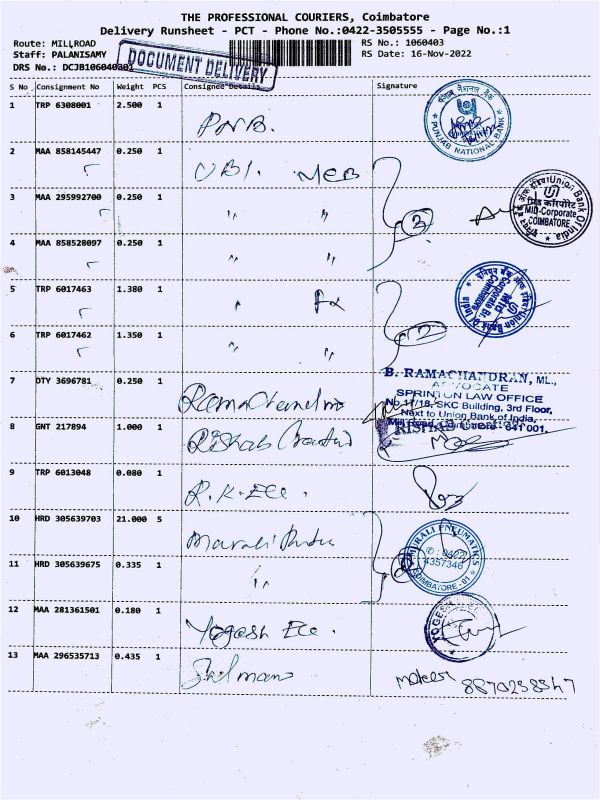 THE PROFESSIONAL COURIERS, Coimbatore
Delivery Runsheet - PCT - Phone No.:0422-3505555 - Page No.:1
Route: MILLROAD RS No.: 1060403
Staff: PALANISAMY RS Date: 16-Nov-2022
DRS No.: DCJB106040301
DOCUMENT DELIVERY
S No Consignment No Weight PCS Consignee Details Signature
1 TRP 6308001 2.500 1 PNB.
PUNJAB NATIONAL BANK
2 MAA 858145447 0.250 1 UBI. MCB
3 MAA 295992700 0.250 1 " " 3
Union Bank Of India
मिड कॉर्पोरेट
MID-Corporate
COIMBATORE
4 MAA 858528097 0.250 1 " "
5 TRP 6017463 1.380 1 "
Union Bank Of India
Mid Corporate Br.
Coimbatore
6 TRP 6017462 1.350 1 " " 2
7 DTY 3696781 0.250 1
B. RAMACHANDRAN, ML.,
ADVOCATE
SPRINTON LAW OFFICE
No.17/18, SKC Building, 3rd Floor,
Next to Union Bank of India,
Mill Road, Coimbatore - 641 001.
8 GNT 217894 1.000 1 Rishab
RISHAB
9 TRP 6013048 0.080 1 R.K. Ele.
10 HRD 305639703 21.000 5 Murali
MURALI PNEUMATICS
✆ : 0422
4357346
COIMBATORE - 01
11 HRD 305639675 0.335 1 "
12 MAA 281361501 0.180 1 Yogesh Ele.
YOGESH
13 MAA 296535713 0.435 1 Salmans
8870258347